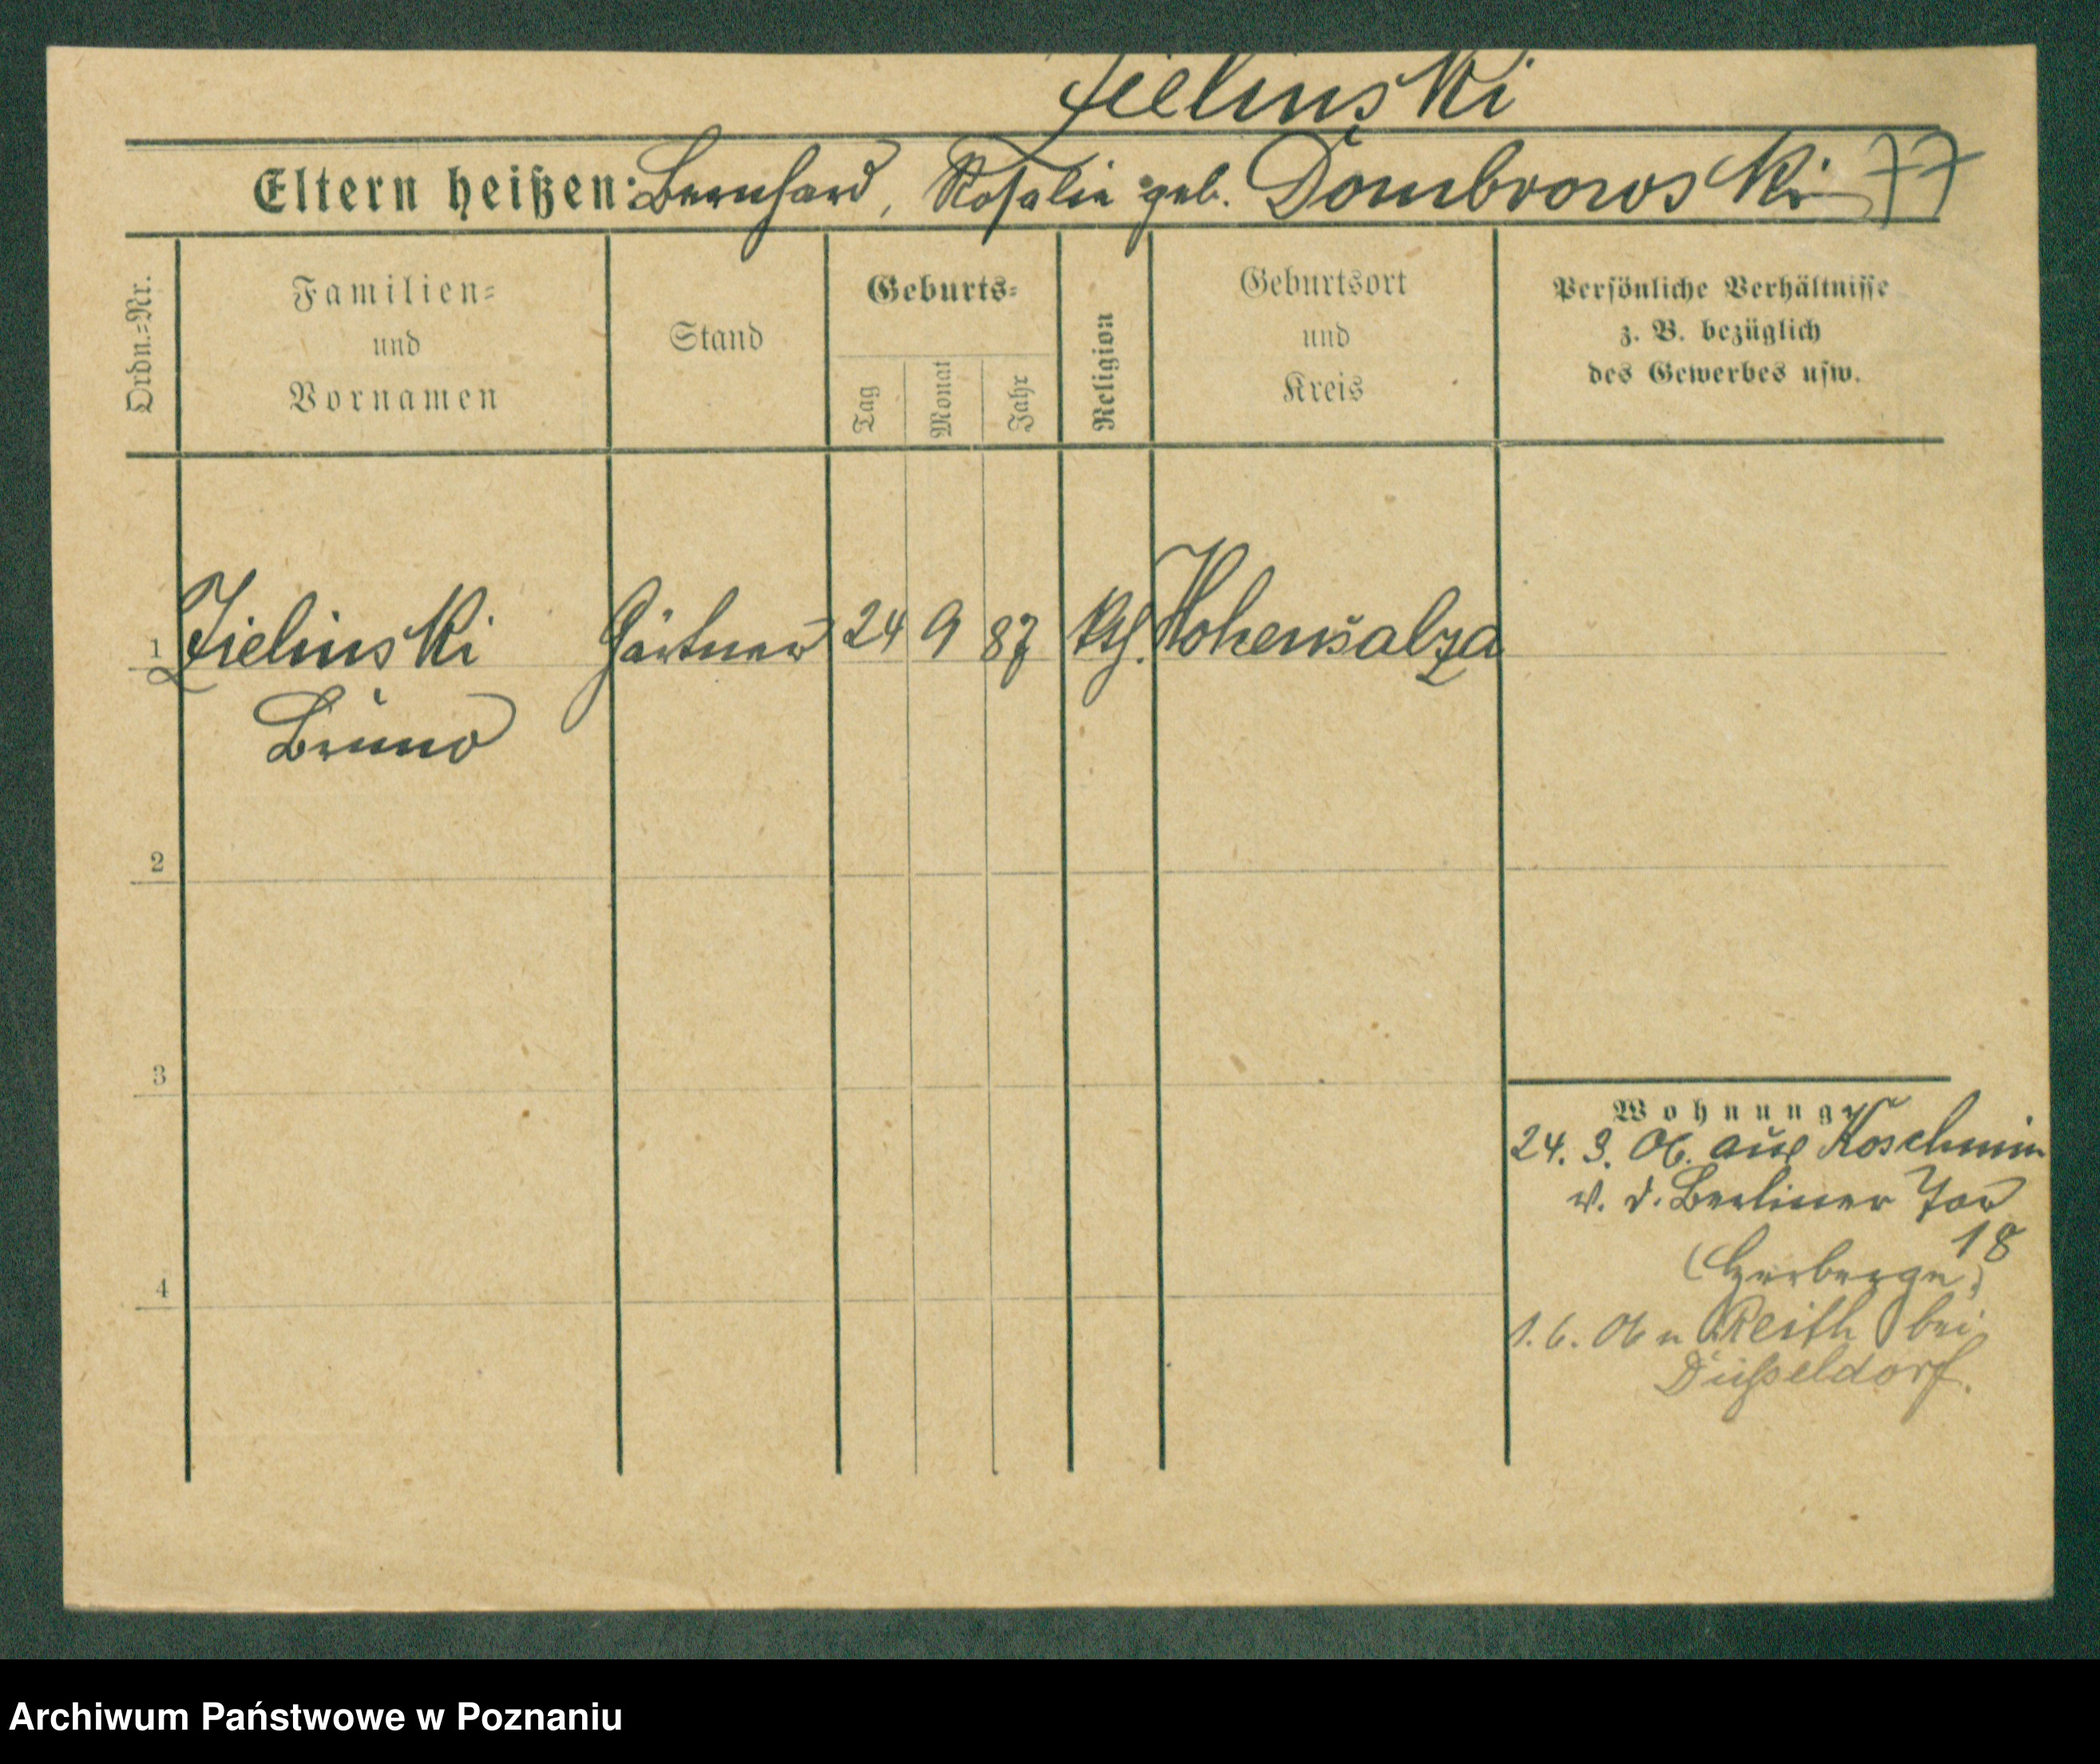 Zielinski
Eltern heißen: Bernhard, Rosalie geb. Dombrowski 77
Ordn.=Nr.
Familien=
und
Vornamen
Stand
Geburts=
Tag
Monat
Jahr
Religion
Geburtsort
und
Kreis
Persönliche Verhältnisse
z. B. bezüglich
des Gewerbes usw.
1 Zielinski Gärtner 24 9 87 kth. Hohensalza
Bruno
2
3
4
Wohnung
24. 3. 06. aus Koschmin
v. d. Berliner Tor
18
(Herberge)
1. 6. 06 n Reith bei
Düsseldorf.
Archiwum Państwowe w Poznaniu